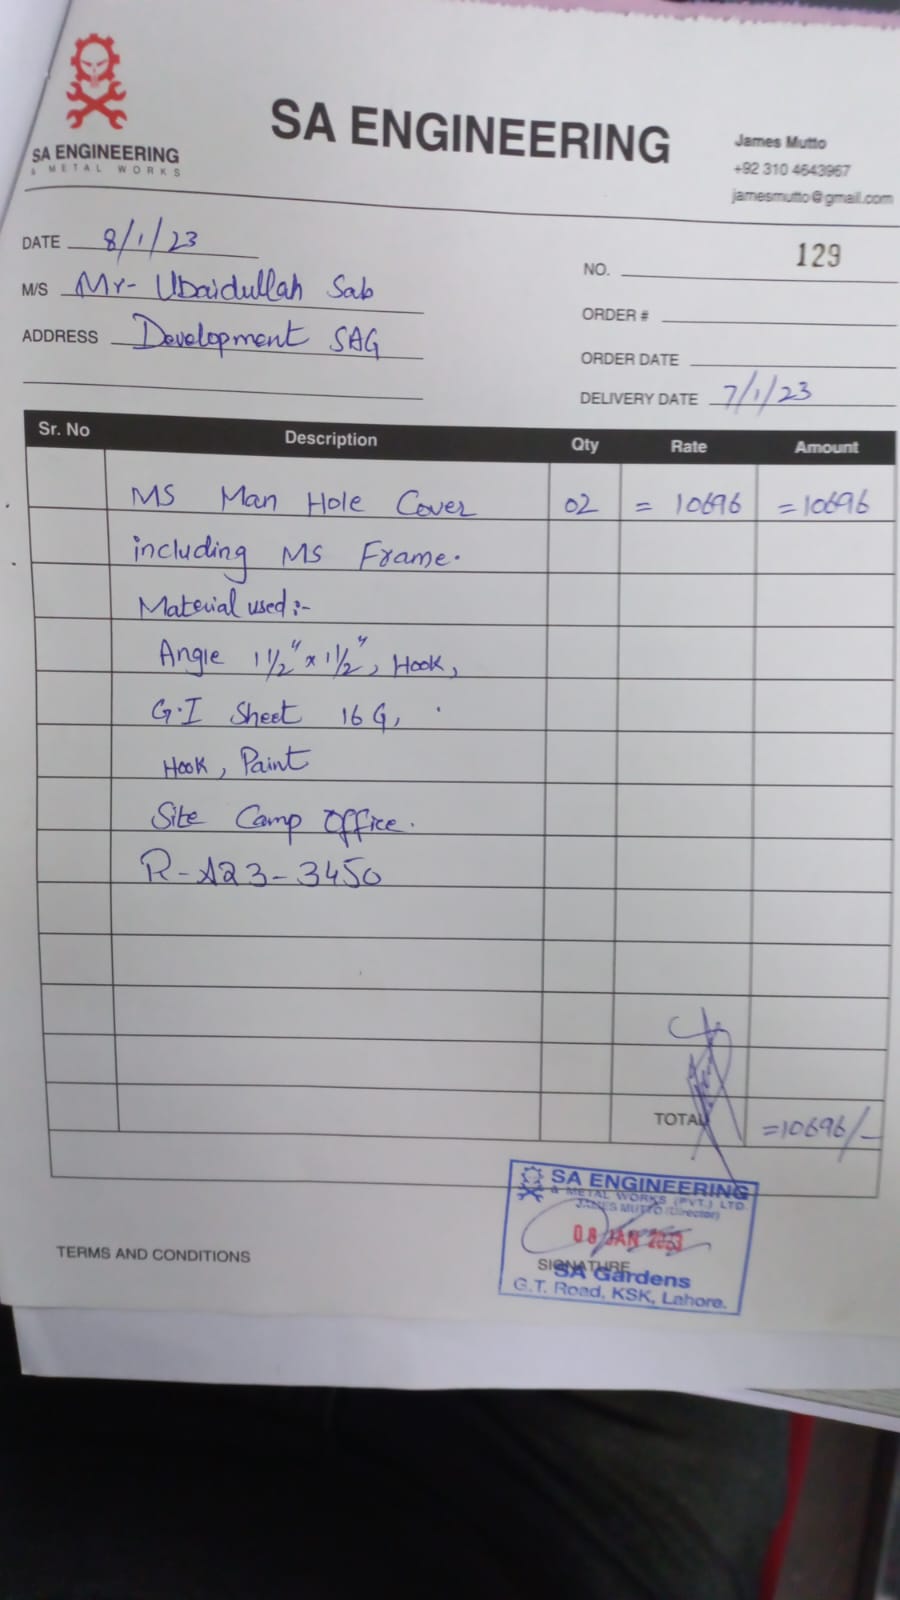 SA ENGINEERING
& METAL WORKS
SA ENGINEERING
James Mutto
+92 310 4643967
jamesmutto@gmail.com
DATE 8/1/23
NO. 129
M/S Mr- Ubaidullah Sab
ORDER #
ADDRESS Development SAG
ORDER DATE
DELIVERY DATE 7/1/23
Sr. No Description Qty Rate Amount
MS Man Hole Cover 02 = 10696 = 10696
including MS Frame.
Material used :-
Angle 1 1/2" x 1 1/2", Hook,
G.I Sheet 16 G,
Hook, Paint
Site Camp Office.
R-A23-3450
TOTAL =10696/-
SA ENGINEERING
& METAL WORKS (PVT.) LTD.
JAMES MUTTO (Director)
08 JAN 2023
TERMS AND CONDITIONS
SIGNATURE
SA Gardens
G.T. Road, KSK, Lahore.